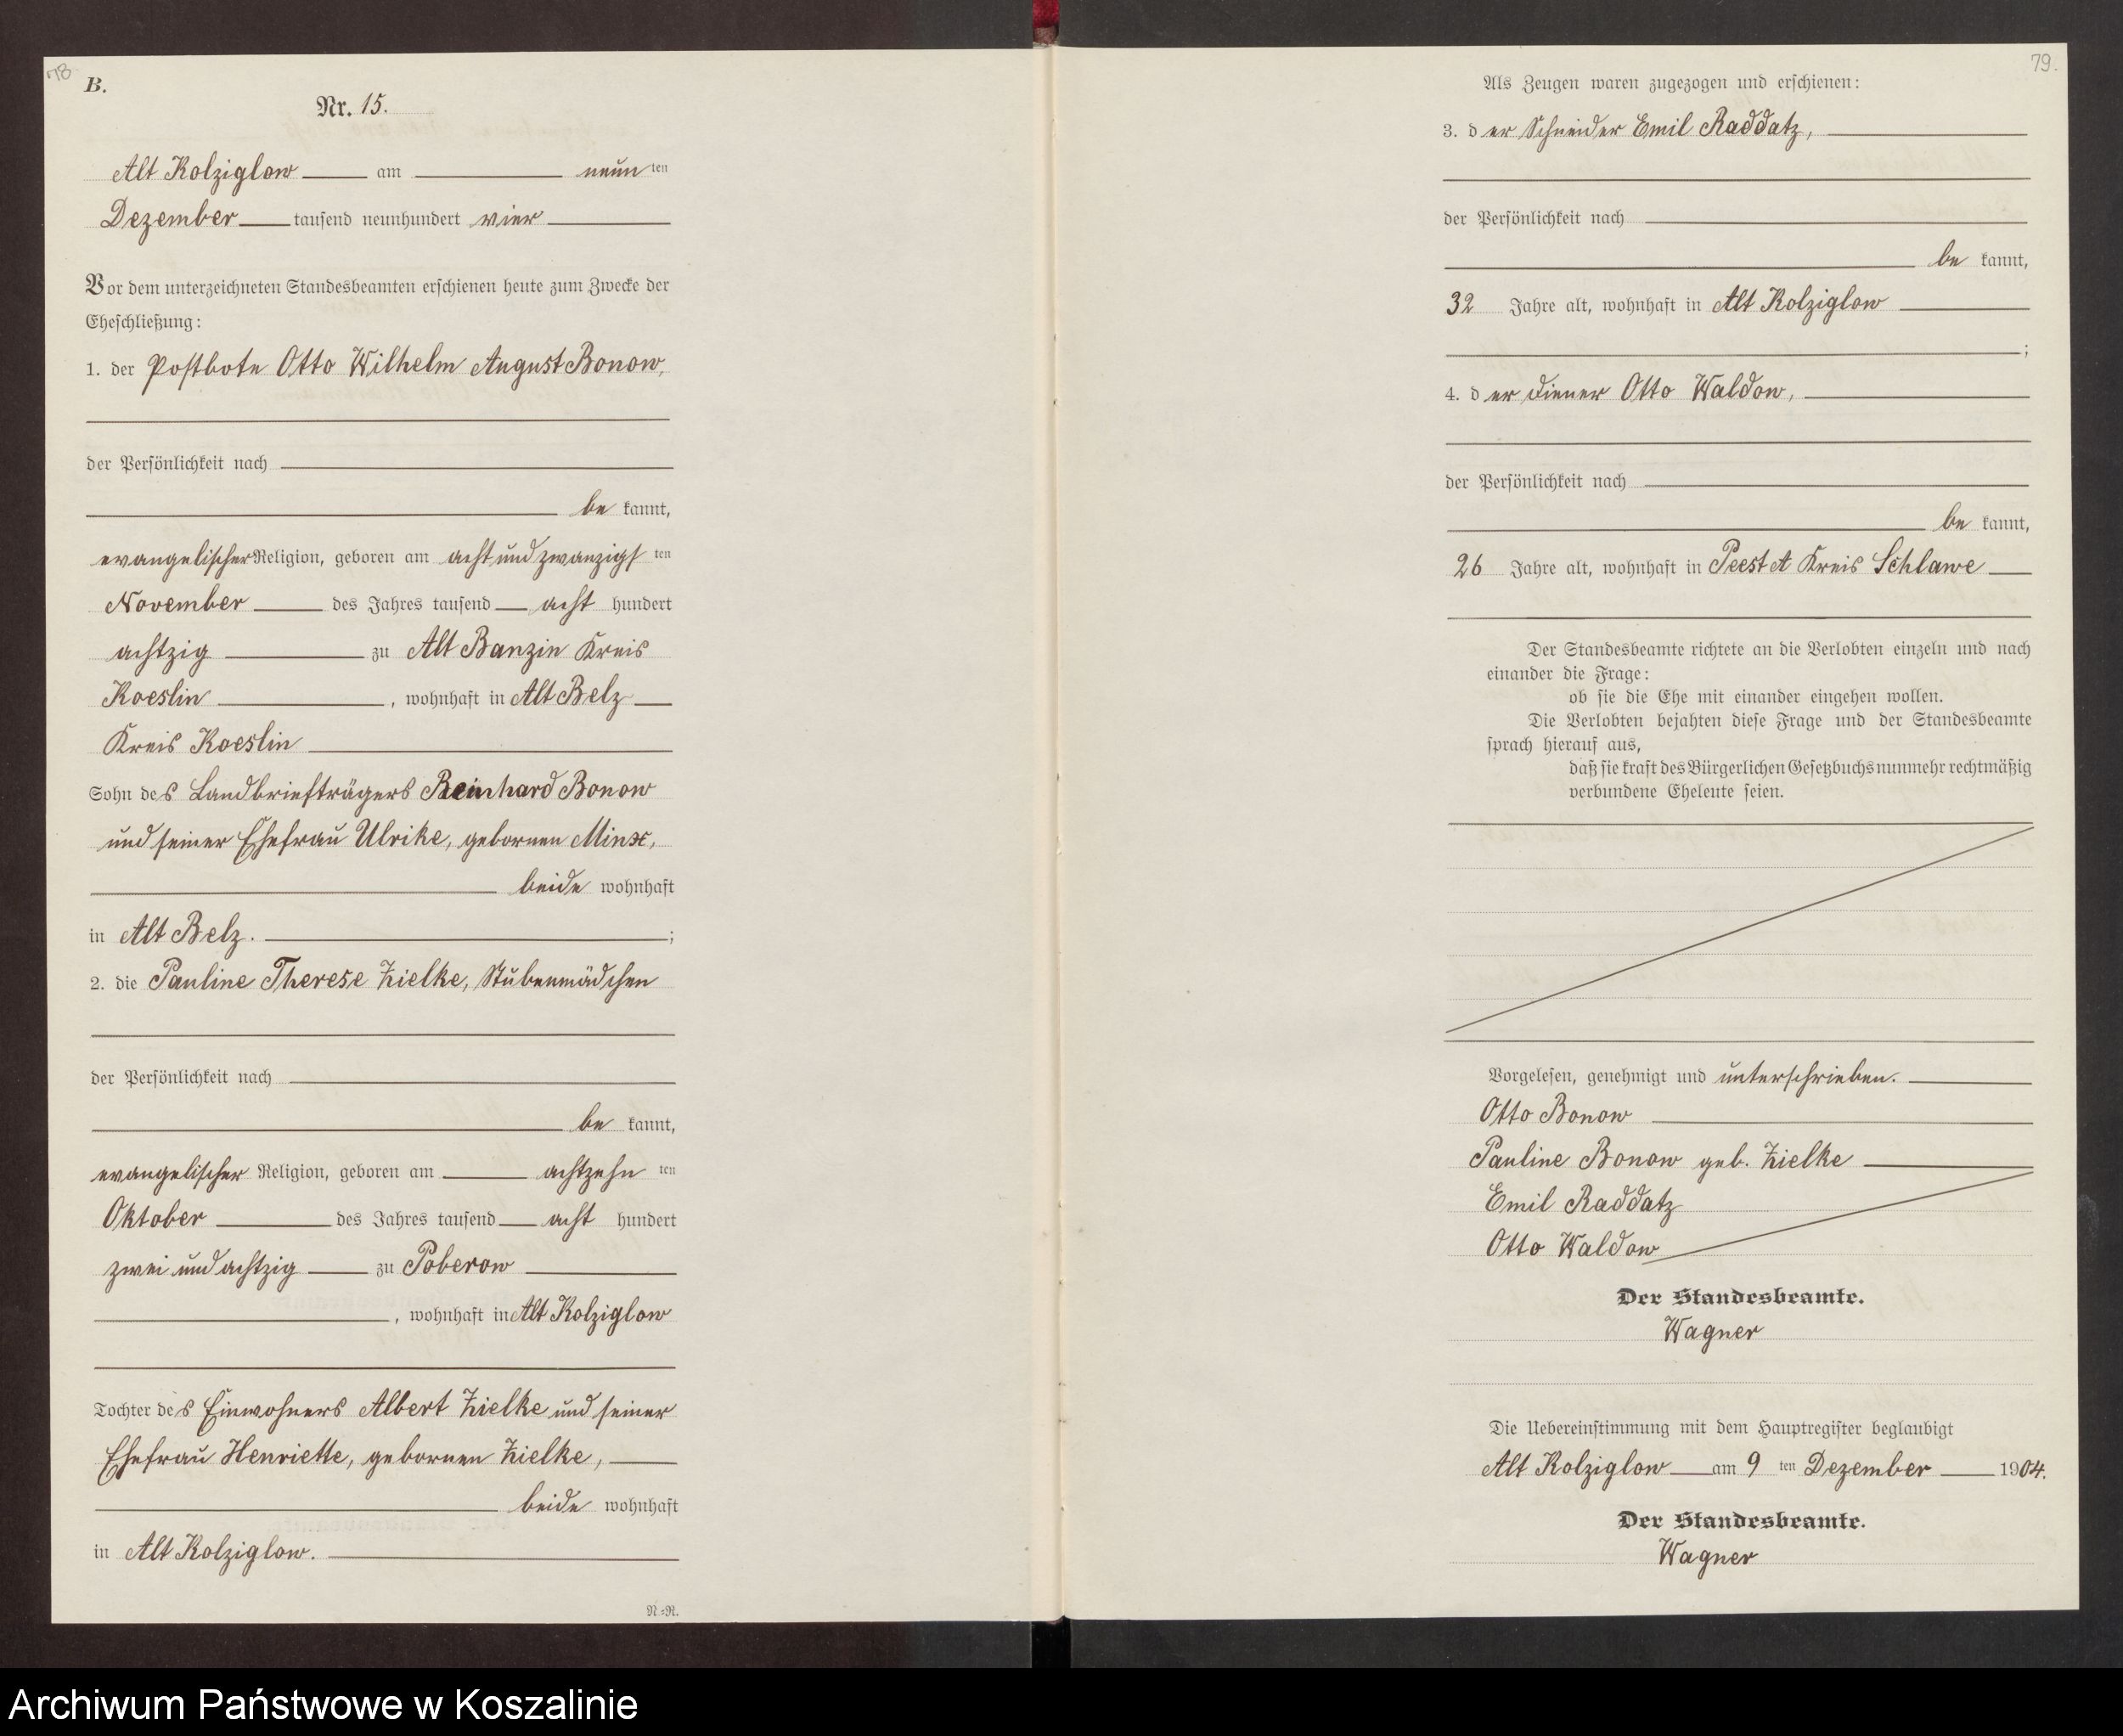 78
B.
Nr. 15.
Alt Kolziglow am neunten
Dezember tausend neunhundert vier
Vor dem unterzeichneten Standesbeamten erschienen heute zum Zwecke der
Eheschließung:
1. der Postbote Otto Wilhelm August Bonow,
der Persönlichkeit nach
be kannt,
evangelischer Religion, geboren am acht und zwanzigsten
November des Jahres tausend acht hundert
achtzig zu Alt Banzin Kreis
Koeslin, wohnhaft in Alt Belz
Kreis Koeslin
Sohn des Landbriefträgers Reinhard Bonow
und seiner Ehefrau Ulrike, gebornen Minx,
beide wohnhaft
in Alt Belz. ;
2. die Pauline Therese Zielke, Stubenmädchen
der Persönlichkeit nach
be kannt,
evangelischer Religion, geboren am achtzehn ten
Oktober des Jahres tausend acht hundert
zwei und achtzig zu Poberow
, wohnhaft in Alt Kolziglow
Tochter des Einwohners Albert Zielke und seiner
Ehefrau Henriette, gebornen Zielke,
beide wohnhaft
in Alt Kolziglow.
N.=N.
79.
Als Zeugen waren zugezogen und erschienen:
3. der Schneider Emil Raddatz,
der Persönlichkeit nach
be kannt,
32 Jahre alt, wohnhaft in Alt Kolziglow
;
4. der Diener Otto Waldow,
der Persönlichkeit nach
be kannt,
26 Jahre alt, wohnhaft in Peest A Kreis Schlawe
Der Standesbeamte richtete an die Verlobten einzeln und nach
einander die Frage:
ob sie die Ehe mit einander eingehen wollen.
Die Verlobten bejahten diese Frage und der Standesbeamte
sprach hierauf aus,
daß sie kraft des Bürgerlichen Gesetzbuchs nunmehr rechtmäßig
verbundene Eheleute seien.
Vorgelesen, genehmigt und unterschrieben.
Otto Bonow
Pauline Bonow geb. Zielke
Emil Raddatz
Otto Waldow
Der Standesbeamte.
Wagner
Die Uebereinstimmung mit dem Hauptregister beglaubigt
Alt Kolziglow am 9 ten Dezember 1904.
Der Standesbeamte.
Wagner
Archiwum Państwowe w Koszalinie